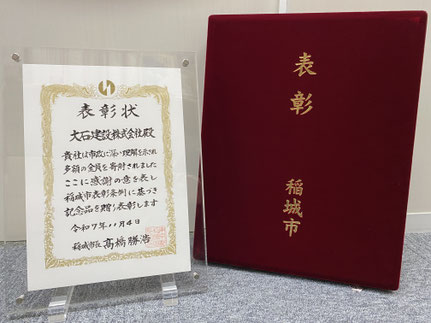 表彰状
大石建設株式会社殿
貴社は市政に深い理解を示され
多額の金員を寄附されました
ここに感謝の意を表し
稲城市表彰条例に基づき
記念品を贈り表彰します
令和7年11月4日
稲城市長 髙橋勝浩
表彰
稲城市